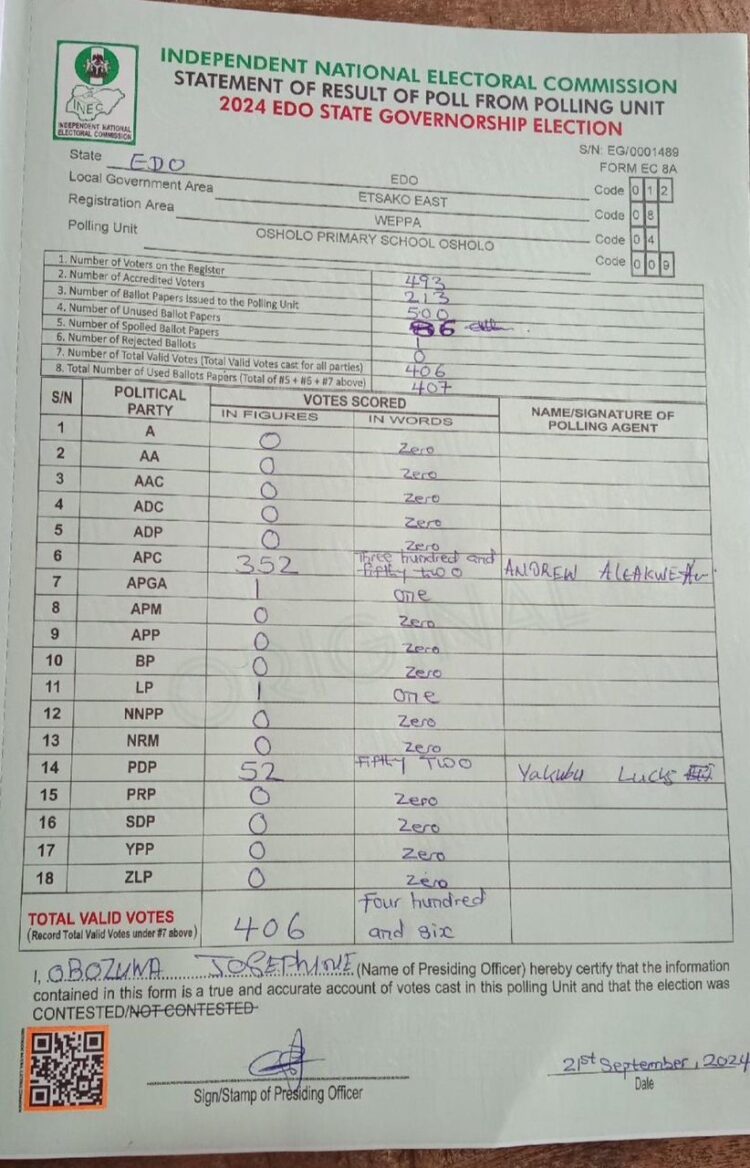 INDEPENDENT NATIONAL ELECTORAL COMMISSION
STATEMENT OF RESULT OF POLL FROM POLLING UNIT
2024 EDO STATE GOVERNORSHIP ELECTION
INEC
INDEPENDENT NATIONAL
ELECTORAL COMMISSION
S/N: EG/0001489
FORM EC 8A
State EDO EDO Code 012
Local Government Area ETSAKO EAST Code 08
Registration Area WEPPA Code 04
Polling Unit OSHOLO PRIMARY SCHOOL OSHOLO Code 009
1. Number of Voters on the Register 493
2. Number of Accredited Voters 213
3. Number of Ballot Papers Issued to the Polling Unit 500
4. Number of Unused Ballot Papers
5. Number of Spoiled Ballot Papers 1
6. Number of Rejected Ballots 0
7. Number of Total Valid Votes (Total Valid Votes cast for all parties) 406
8. Total Number of Used Ballots Papers (Total of #5 + #6 + #7 above) 407
S/N POLITICAL PARTY VOTES SCORED NAME/SIGNATURE OF POLLING AGENT
IN FIGURES IN WORDS
1 A 0 Zero
2 AA 0 Zero
3 AAC 0 Zero
4 ADC 0 Zero
5 ADP 0 Zero
6 APC 352 Three hundred and fifty two ANDREW
7 APGA 1 one
8 APM 0 Zero
9 APP 0 Zero
10 BP 0 Zero
11 LP 1 one
12 NNPP 0 Zero
13 NRM 0 Zero
14 PDP 52 Fifty Two Yakubu
15 PRP 0 Zero
16 SDP 0 Zero
17 YPP 0 Zero
18 ZLP 0 Zero
ORIGINAL
TOTAL VALID VOTES 406 Four hundred
(Record Total Valid Votes under #7 above) and six
I, OBOZUWA JOSEPHINE (Name of Presiding Officer) hereby certify that the information
contained in this form is a true and accurate account of votes cast in this polling Unit and that the election was
CONTESTED/NOT CONTESTED
21st September, 2024
Sign/Stamp of Presiding Officer Date